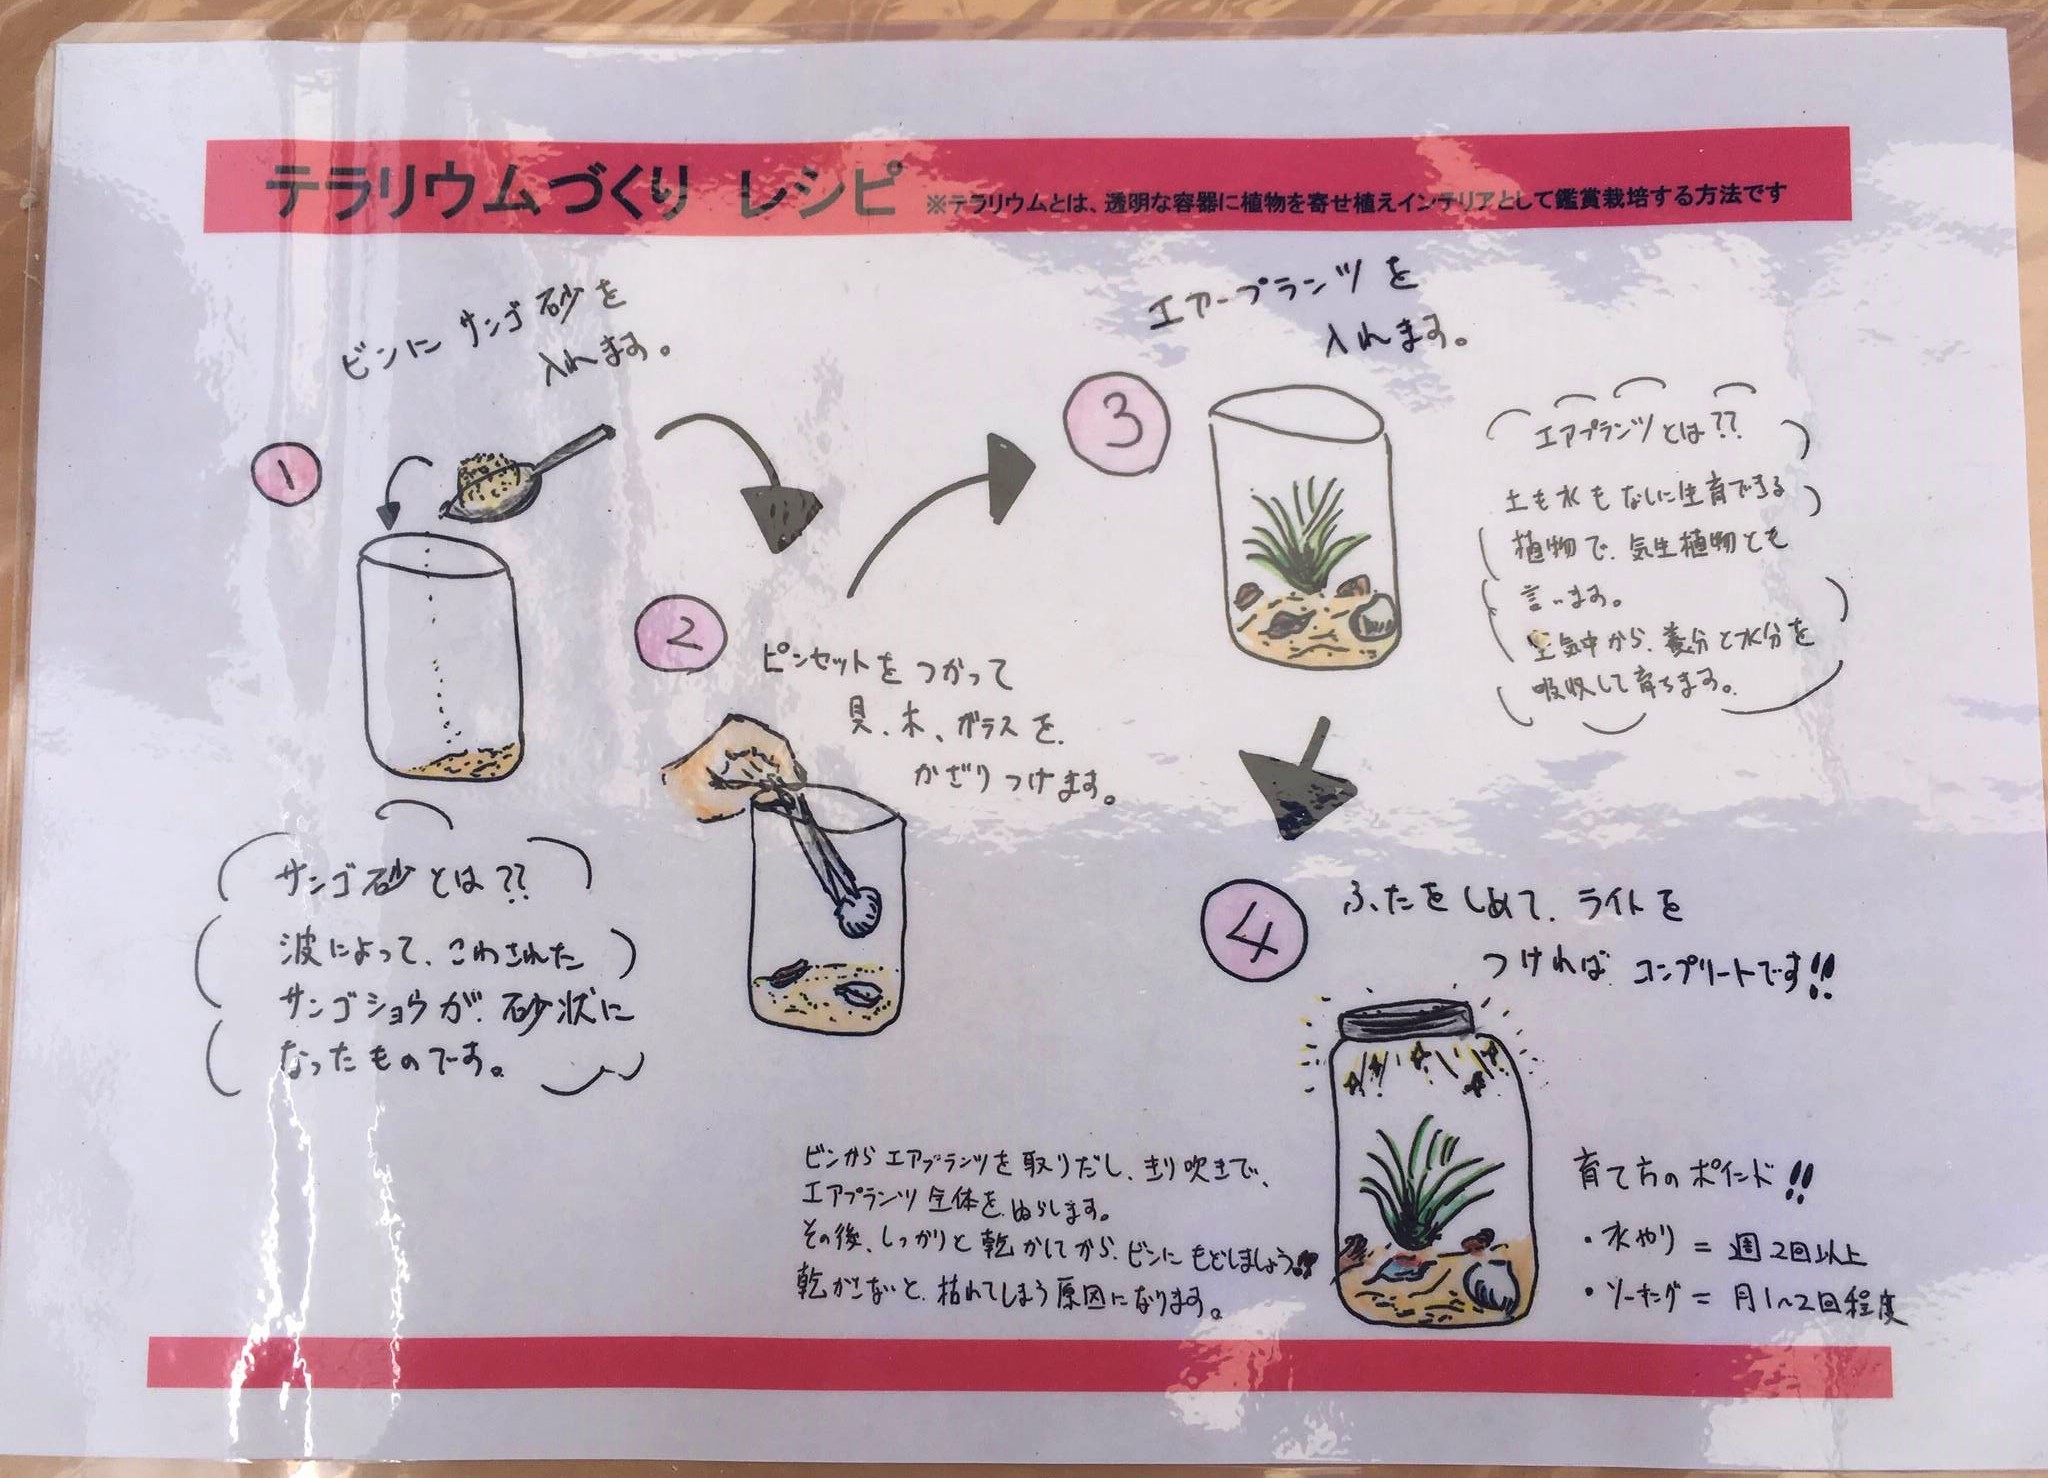 テラリウムづくり レシピ ※テラリウムとは、透明な容器に植物を寄せ植えインテリアとして鑑賞栽培する方法です
1
ビンにサンゴ砂を
入れます。
サンゴ砂とは??
波によって、こわされた
サンゴショウが、砂状に
なったものです。
2
ピンセットをつかって
貝、木、ガラスを
かざりつけます。
3
エアープランツを
入れます。
エアプランツとは??
土も水もなしに生育できる
植物で、気生植物とも
言います。
空気中から、養分と水分を
吸収して育ちます。
4
ふたをしめて、ライトを
つければ コンプリートです!!
ビンからエアプランツを取りだし、きり吹きで、
エアプランツ全体をぬらします。
その後、しっかりと乾かしてから、ビンにもどしましょう!!
乾かさないと、枯れてしまう原因になります。
育て方のポイント!!
・水やり = 週2回以上
・ソーキング = 月1~2回程度